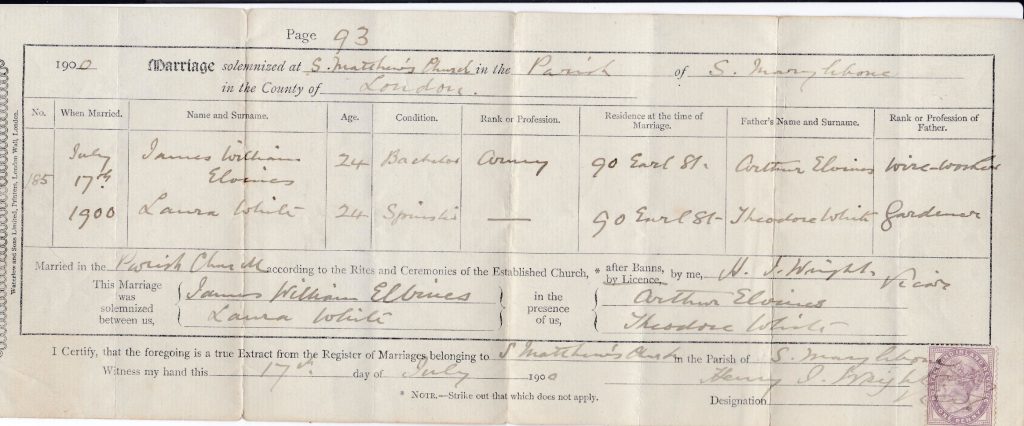 Page 93
1900 Marriage solemnized at S. Matthew's Church in the Parish of S. Marylebone
in the County of London.
No. When Married. Name and Surname. Age. Condition. Rank or Profession. Residence at the time of Marriage. Father's Name and Surname. Rank or Profession of Father.
185 July 17th 1900
James William Elvines 24 Bachelor Army 90 Earl St. Arthur Elvines Wire-worker
Laura White 24 Spinster — 90 Earl St Theodore White Gardener
Married in the Parish Church according to the Rites and Ceremonies of the Established Church, * after Banns, by Licence, by me, H. J. Wright. Vicar
This Marriage was solemnized between us, James William Elvines Laura White
in the presence of us, Arthur Elvines Theodore White
I Certify, that the foregoing is a true Extract from the Register of Marriages belonging to S Matthew's Church in the Parish of S. Marylebone
Witness my hand this 17th day of July 1900 Henry J. Wright
* NOTE.—Strike out that which does not apply. Designation
Waterlow and Sons Limited, Printers, London Wall, London.
ONE PENNY